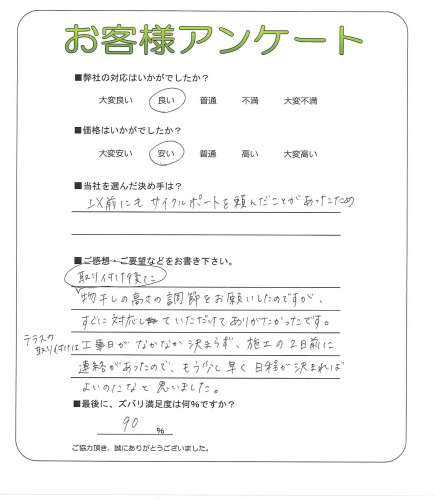 お客様アンケート
■弊社の対応はいかがでしたか？
大変良い 良い 普通 不満 大変不満
■価格はいかがでしたか？
大変安い 安い 普通 高い 大変高い
■当社を選んだ決め手は？
以前にも サイクルポートを頼んだことがあったため
■ご感想・ご要望などをお書き下さい。
取り付け後に
物干しの高さの調節をお願いしたのですが、
すぐに対応していただけてありがたかったです。
テラスの
取り付けは
工事日がなかなか決まらず、施工の2日前に
連絡があったので、もう少し早く日程が決まれば
よいのになと思いました。
■最後に、ズバリ満足度は何%ですか？
90 %
ご協力頂き、誠にありがとうございました。